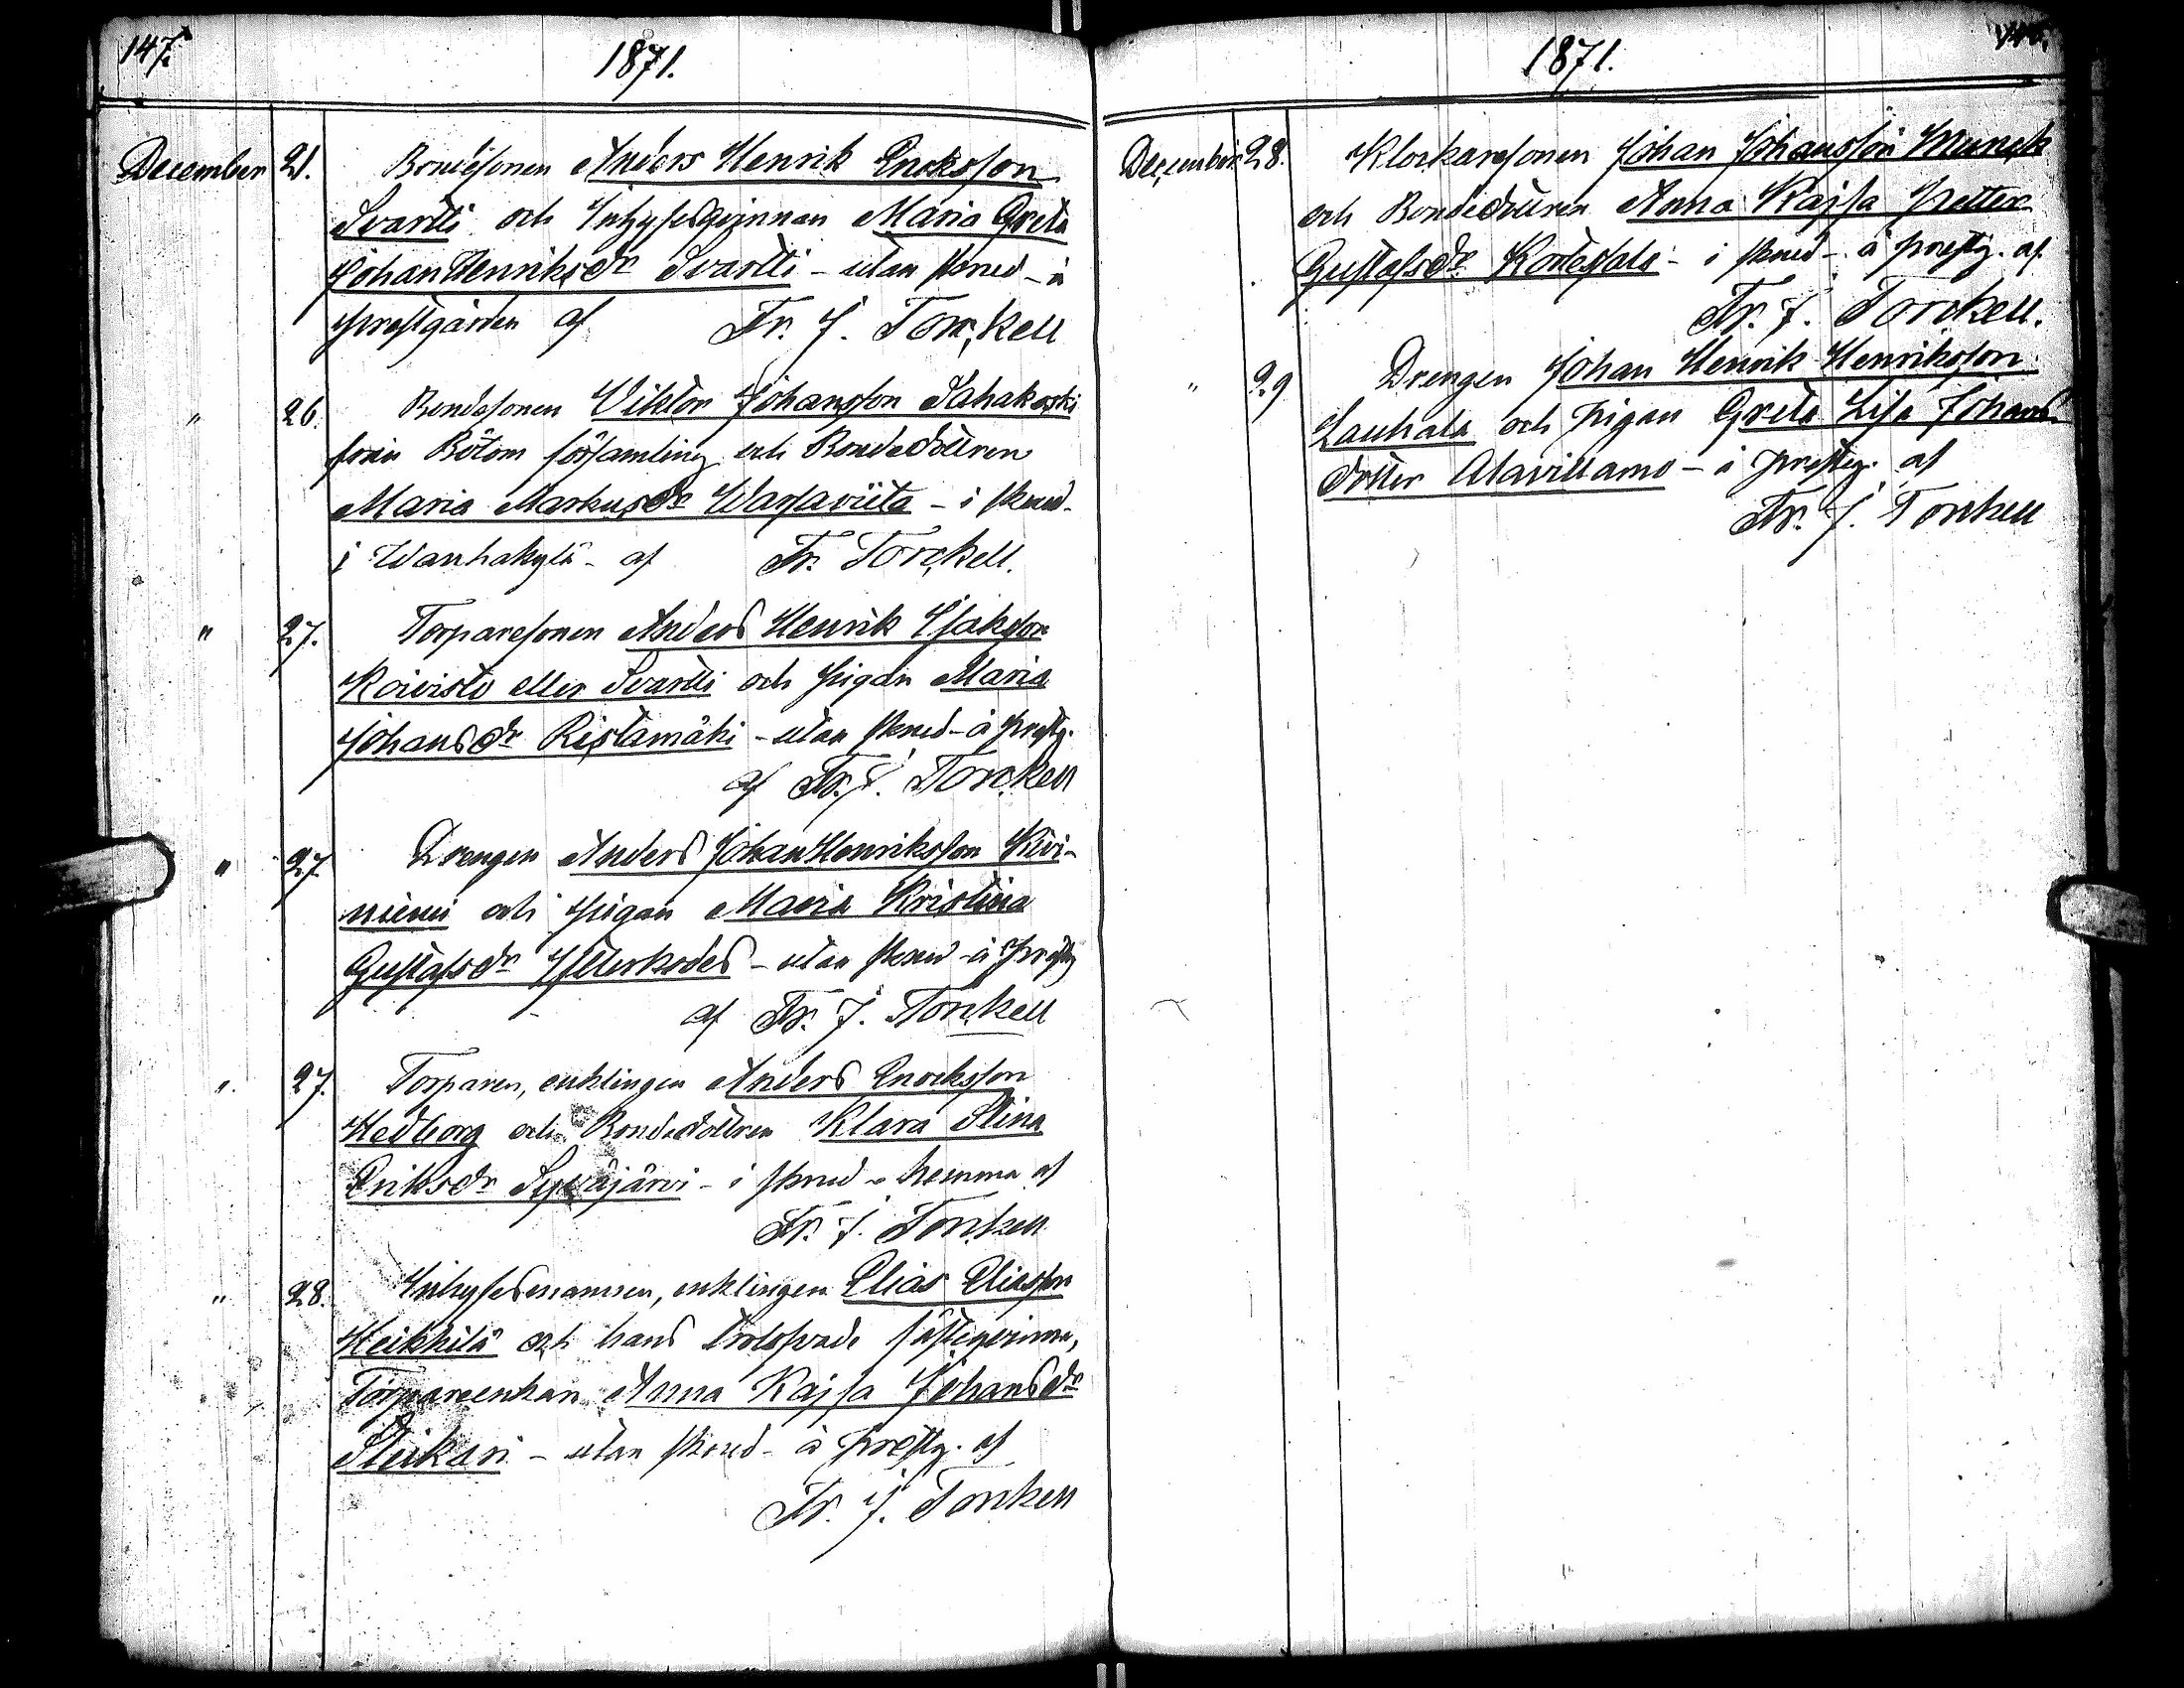 147.
1871.
December 21. Bondesonen Anders Henrik Enoksson
Svartti och Inhysesqvinnan Maria Greta
Johan Henriksdr Svartti - utan skrud - å
prestgården af Fr. J. Torckell
" 26. Bondesonen Viktor Johansson Sahakoski
från Bötom församling och Bondedottren
Maria Markusdr Wasaviita - i skrud -
i Wanhakylä - af Fr. Torckell.
" 27. Torparesonen Anders Henrik Isaksson
Koivisto eller Svartti och pigan Maria
Johansdr Ristamäki - utan skrud - å prestg.
af Fr. J. Torckell
" 27. Drengen Anders Johan Henriksson Kivi-
niemi och pigan Maria Kristina
Gustafsdr - utan skrud - å prestg
af Fr. J. Torckell
" 27. Torparen, enklingen Anders Enocksson
Hedborg och Bondedottren Klara Stina
Eriksdr Syväjärvi - i skrud - hemma af
Fr. J. Torckell
" 28. Inhysesmannen, enklingen Elias Eliasson
Heikkilä och hans trolofvade fästeqvinna,
Torpareenkan Anna Kajsa Johansdr
Steikari - utan skrud - å prestg. af
Fr. J. Torckell
1871.
December 28. Klockaresonen Johan Johansson Munck
och Bondedottren Anna Kajsa Petter
Gustafsdr Kortesalo - i skrud - å prestg. af
Fr. J. Torckell.
" 29 Drengen Johan Henrik Henriksson
Lauhala och pigan Greta Lisa Johans
dotter Alavillamo - å prestg. af
Fr. J. Torckell